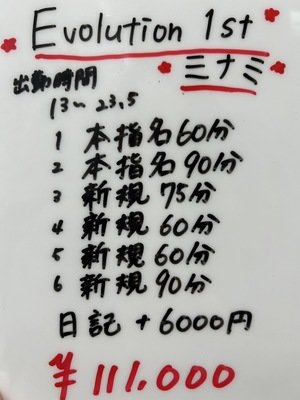 Evolution 1st
ミナミ
出勤時間
13〜23.5
1 本指名60分
2 本指名90分
3 新規 75分
4 新規 60分
5 新規 60分
6 新規 90分
日記 + 6000円
¥111.000